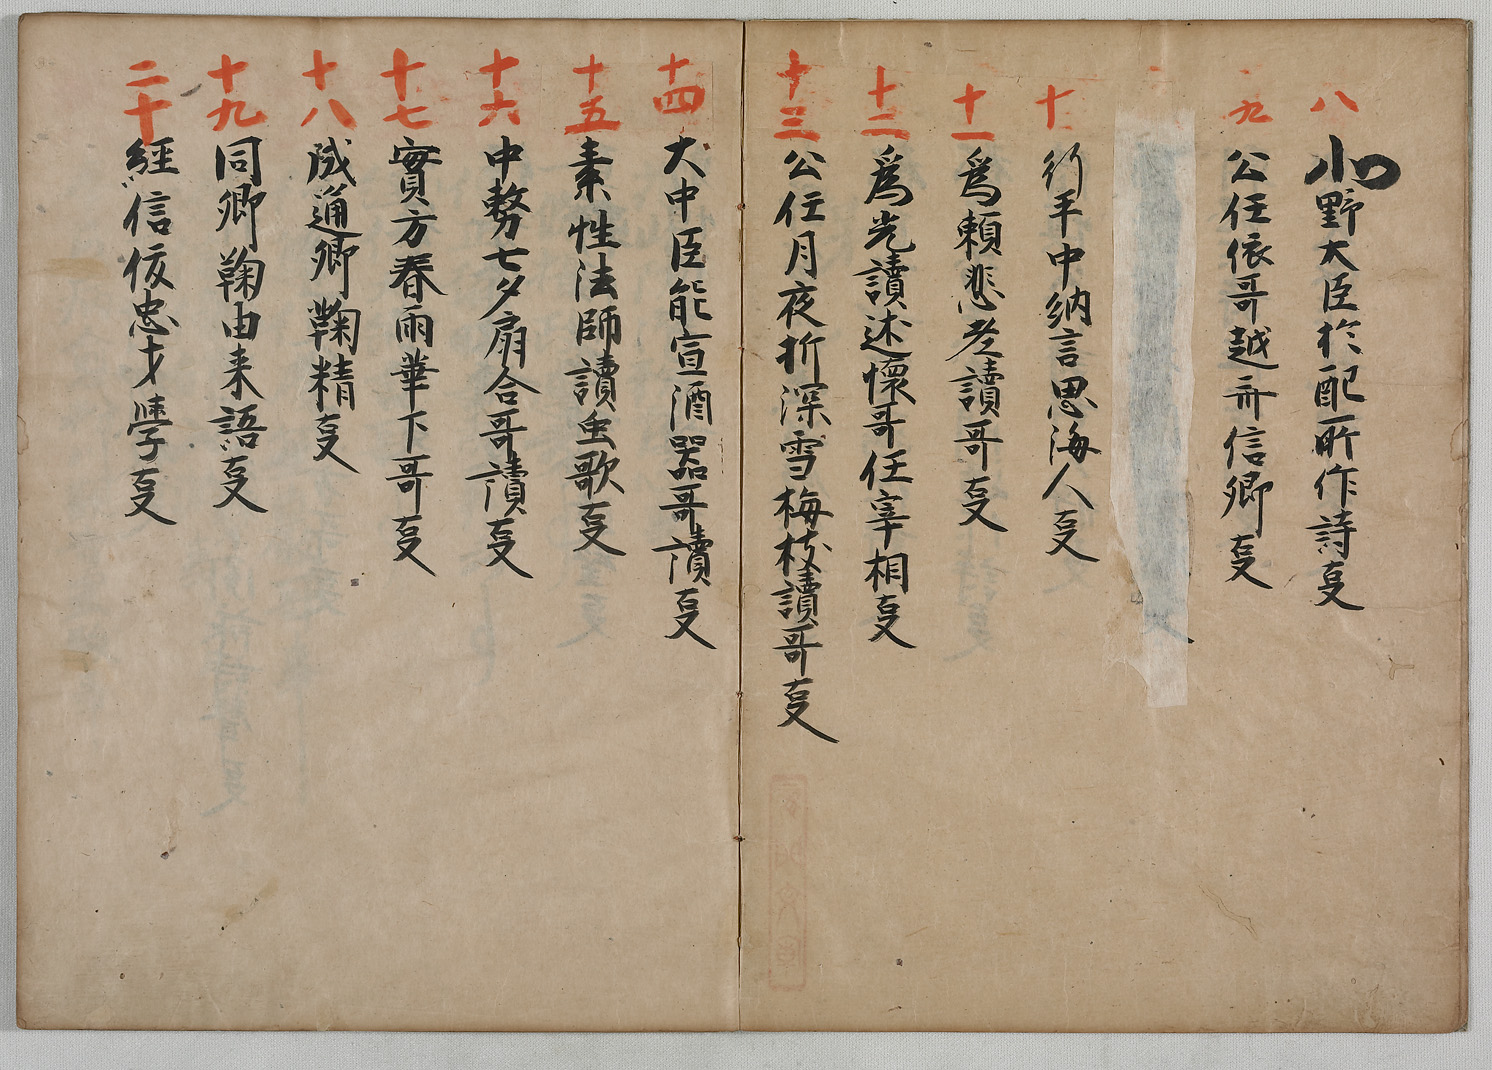 八 北野大臣於配所作詩亊
九 公任依哥越前信卿亊
十 行平中納言思海人亊
十一 爲頼悲老讀哥亊
十二 爲光讀述懷哥任宰相亊
十三 公任月夜折深雪梅枝讀哥亊
十四 大中臣能宣酒器哥讀亊
十五 素性法師讀虫歌亊
十六 中務七夕扇合哥讀亊
十七 實方春雨華下哥亊
十八 成通卿鞠精亊
十九 同卿鞠由来語亊
二十 經信俊忠才學亊